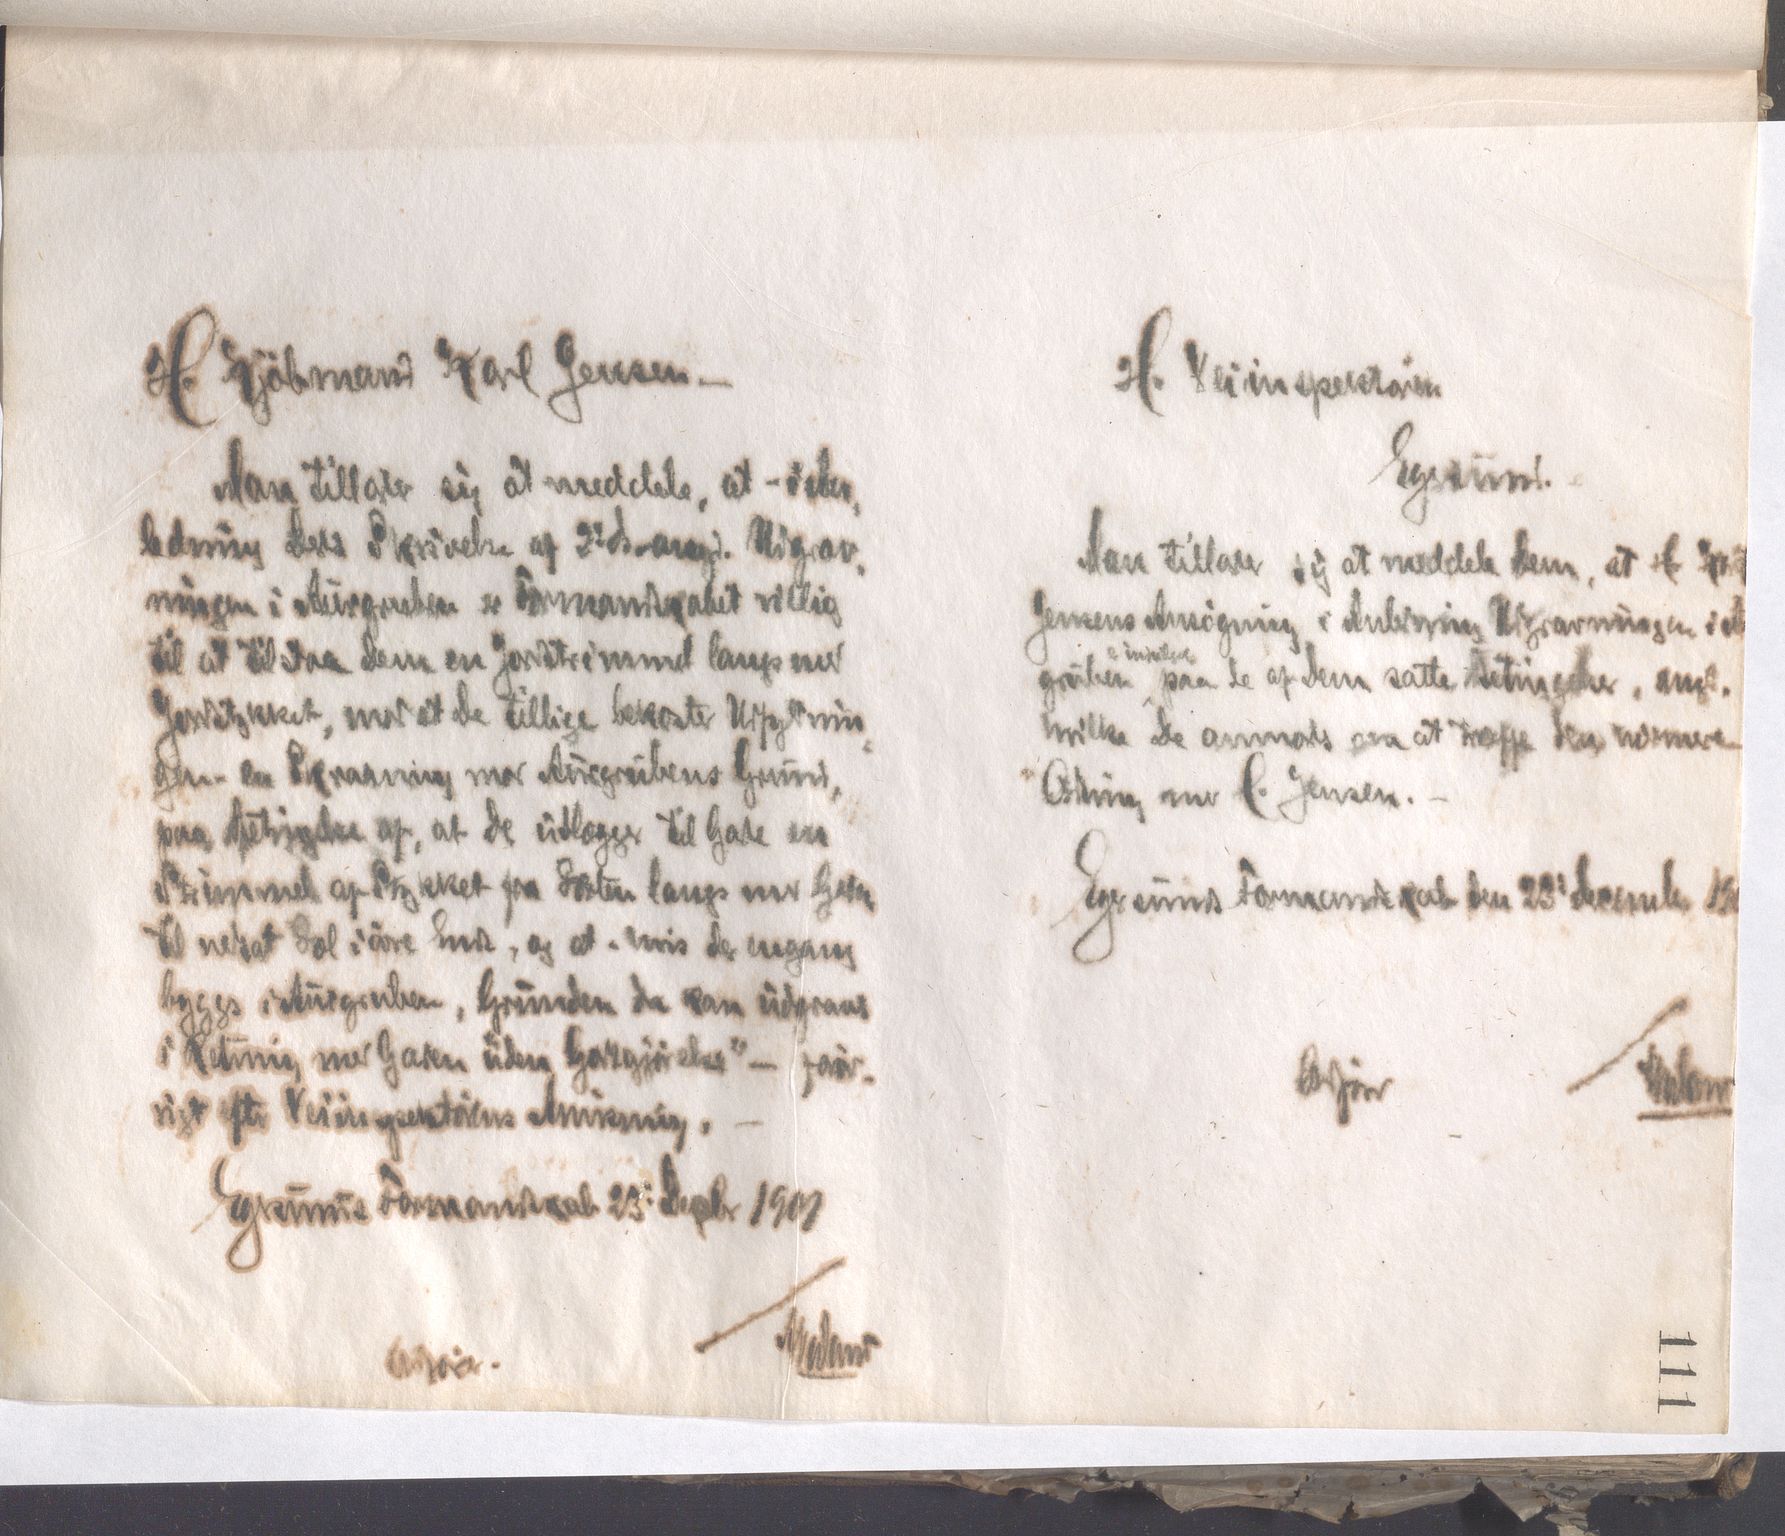 H. Kjöbmand Karl Jensen. —
Man tillater sig at meddele, at - i An-
ledning Deres Skrivelse af 2' ds. ang. Udgrav-
ningen i Aurgruben er Formandskabet villig
til at tilstaa Dem en Jordstrimmel langs med
Jordstykket, mod at De tillige bekoster Udfyldnin-
gen - en Skraaning mod Aurgrubens Grund,
paa Betingelse af, at De udlægger til Gade en
Strimmel af Stykket fra Östen langs med Gaden
til nedat Sol i övre Ende, og at - hvis der engang
bygges i Aurgruben, Grunden da kan udgraves
i Retning mod Gaden uden Godtgjörelse" — forör-
rigt efter Veiinspektörens Anvisning. —
Egersunds Formandskab 23' Decbr 1901
H. Veiinspektören
Egersund. -
Man tillater sig at meddele Dem, at H
Jensens Ansögning i Anledning Udgravningen i
gruben er indvilget paa de af Dem satte Betingelser,
hvilke De anmodes om at træffe den nærmere
Ordning med C. Jensen. —
Egersunds Formandskab den 23' December
111